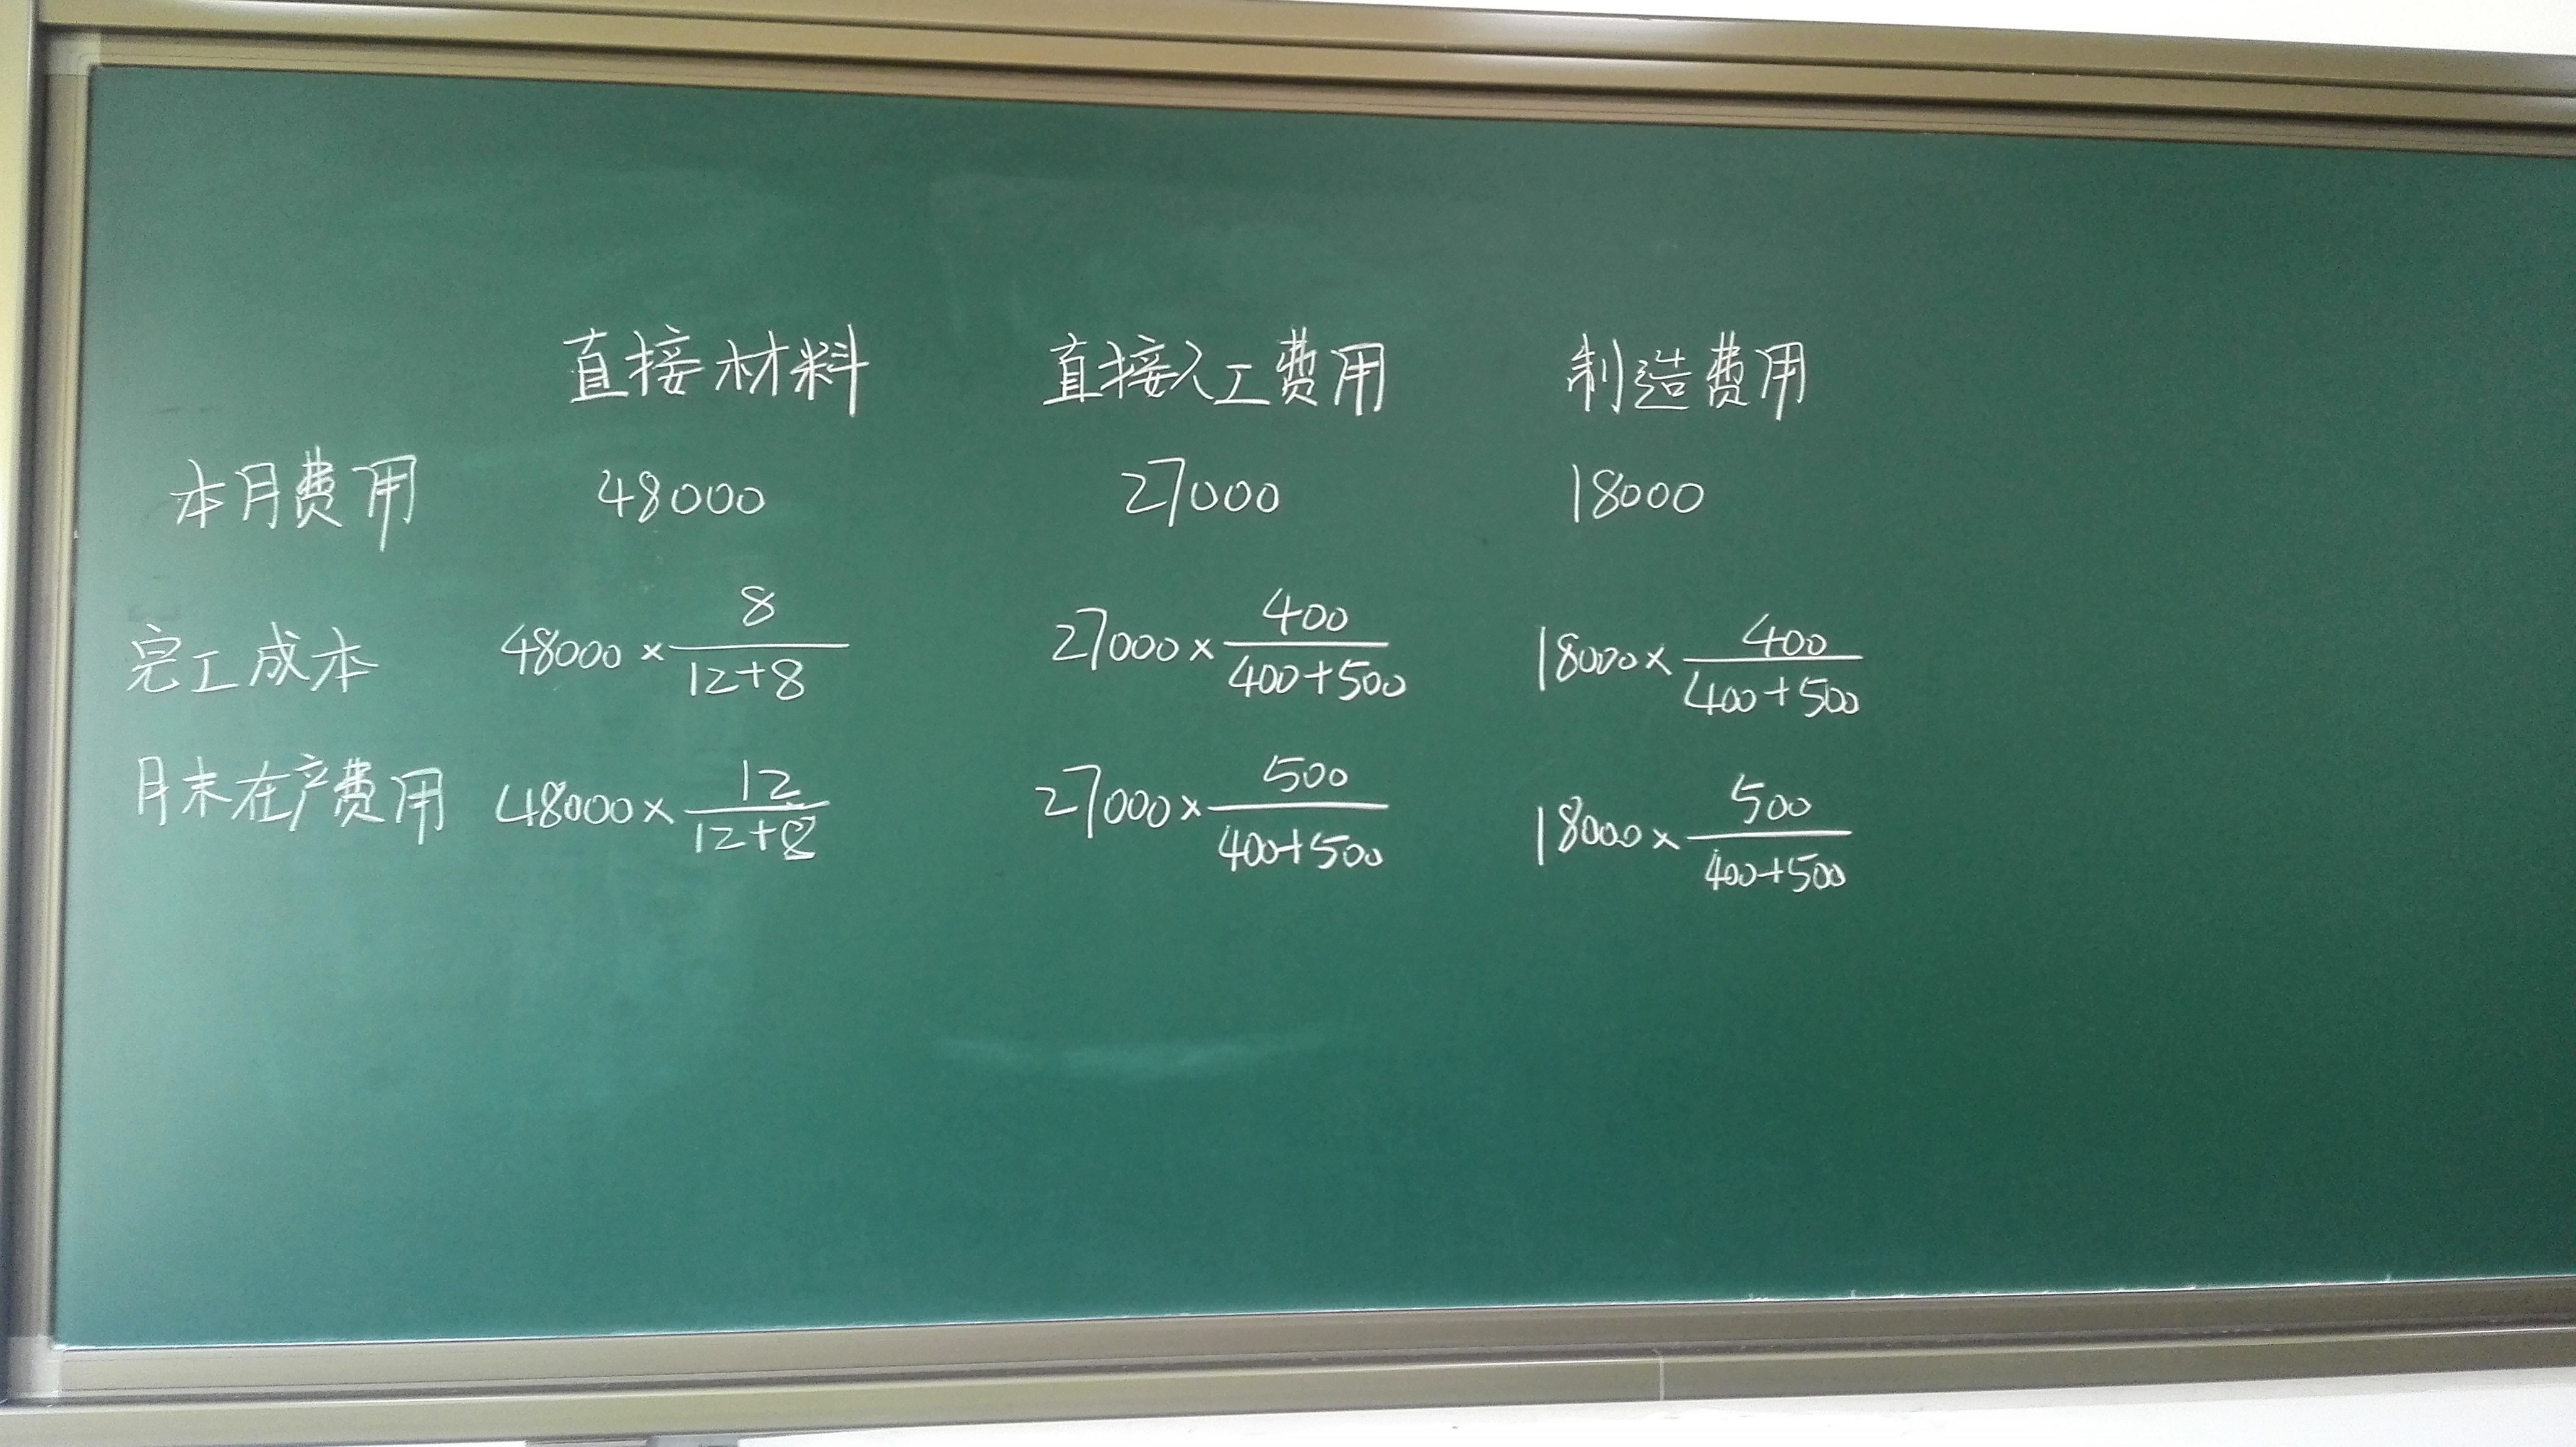 直接材料 直接人工费用 制造费用
本月费用 48000 27000 18000
完工成本 48000 × 8/(12+8) 27000 × 400/(400+500) 18000 × 400/(400+500)
月末在产费用 48000 × 12/(12+8) 27000 × 500/(400+500) 18000 × 500/(400+500)